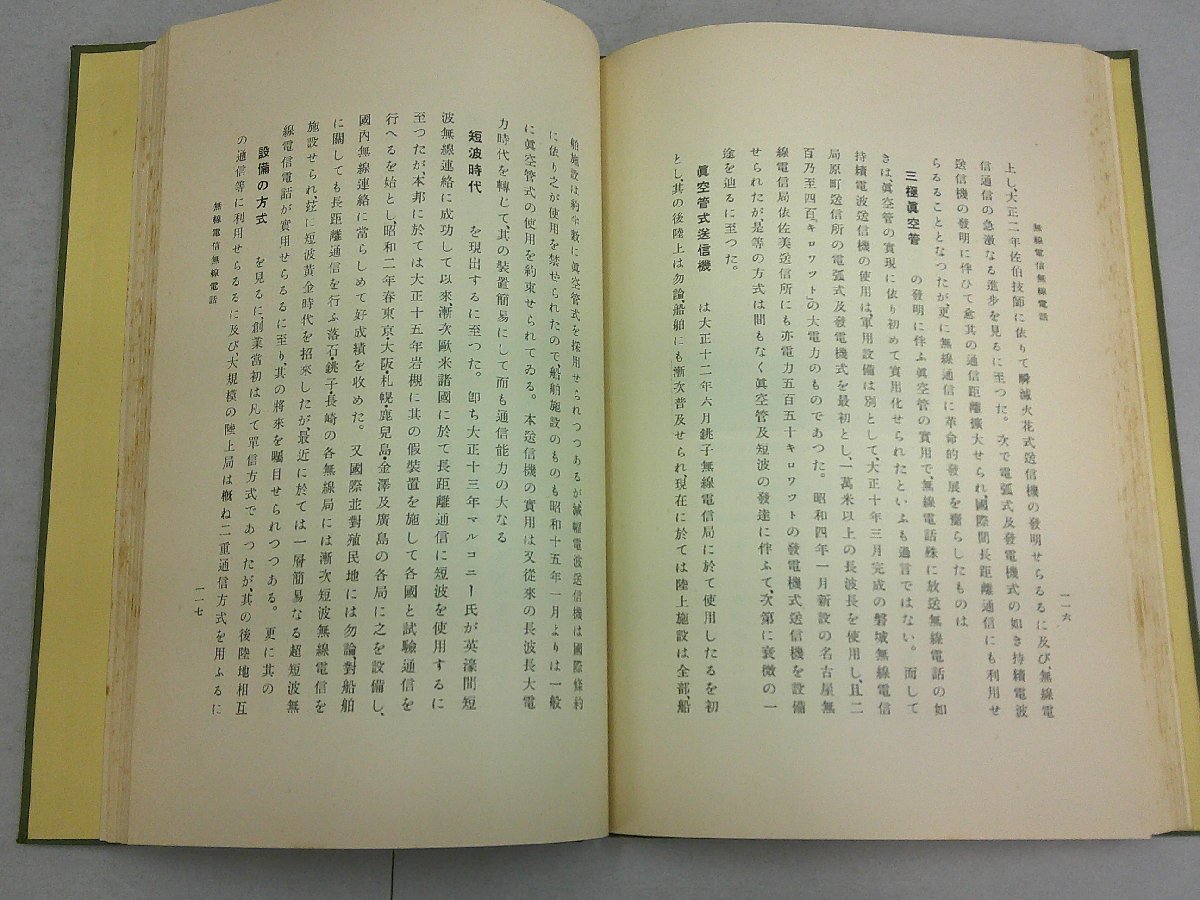 無線電信無線電話
一一六
上し、大正二年佐伯技師に依りて瞬滅火花式送信機の發明せらるるに及び、無線電
信通信の急激なる進步を見るに至つた。次で電弧式及發電機式の如き持續電波
送信機の發明に伴ひて愈其の通信距離擴大せられ、國際間長距離通信にも利用せ
らるることとなつたが、更に無線通信に革命的發展を齎らしたものは
三極眞空管 の發明に伴ふ眞空管の實用で、無線電話殊に放送無線電話の如
きは、眞空管の實現に依り初めて實用化せられたといふも過言ではない。而して
持續電波送信機の使用は、軍用設備は別として、大正十年三月完成の磐城無線電信
局原町送信所の電弧式及發電機式を最初とし、一萬米以上の長波長を使用し、且二
百乃至四百「キロワット」の大電力のものであつた。昭和四年一月新設の名古屋無
線電信局依佐美送信所にも亦電力五百五十キロワットの發電機式送信機を設備
せられたが、是等の方式は間もなく眞空管及短波の發達に伴ふて、次第に衰微の一
途を辿るに至つた。
眞空管式送信機 は大正十二年六月銚子無線電信局に於て使用したるを初
とし、其の後陸上は勿論船舶にも漸次普及せられ、現在に於ては陸上施設は全部、船
舶施設は約半數に眞空管式を採用せられつつあるが減幅電波送信機は國際條約
に依り之が使用を禁ぜられたので、船舶施設のものも昭和十五年一月よりは一般
に眞空管式の使用を約束せられてゐる。本送信機の實用は又從來の長波長大電
力時代を轉じて、其の裝置簡易にして而も通信能力の大なる
短波時代 を現出するに至つた。卽ち大正十三年マルコニー氏が英濠間短
波無線連絡に成功して以來、漸次歐米諸國に於て長距離通信に短波を使用するに
至つたが、本邦に於ては大正十五年岩槻に其の假裝置を施して各國と試驗通信を
行へるを始とし、昭和二年春東京・大阪・札幌・鹿兒島・金澤及廣島の各局に之を設備し、
國內無線連絡に當らしめて好成績を收めた。又國際並對殖民地には勿論、對船舶
に關しても長距離通信を行ふ落石・銚子・長崎の各無線局には漸次短波無線電信を
施設せられ、玆に短波黃金時代を招來したが、最近に於ては一層簡易なる超短波無
線電信電話が實用せらるるに至り、其の將來を矚目せられつつある。更に其の
設備の方式 を見るに、創業當初は凡て單信方式であつたが、其の後陸地相互
の通信等に利用せらるるに及び、大規模の陸上局は槪ね二重通信方式を用ふるに
無線電信無線電話
一一七